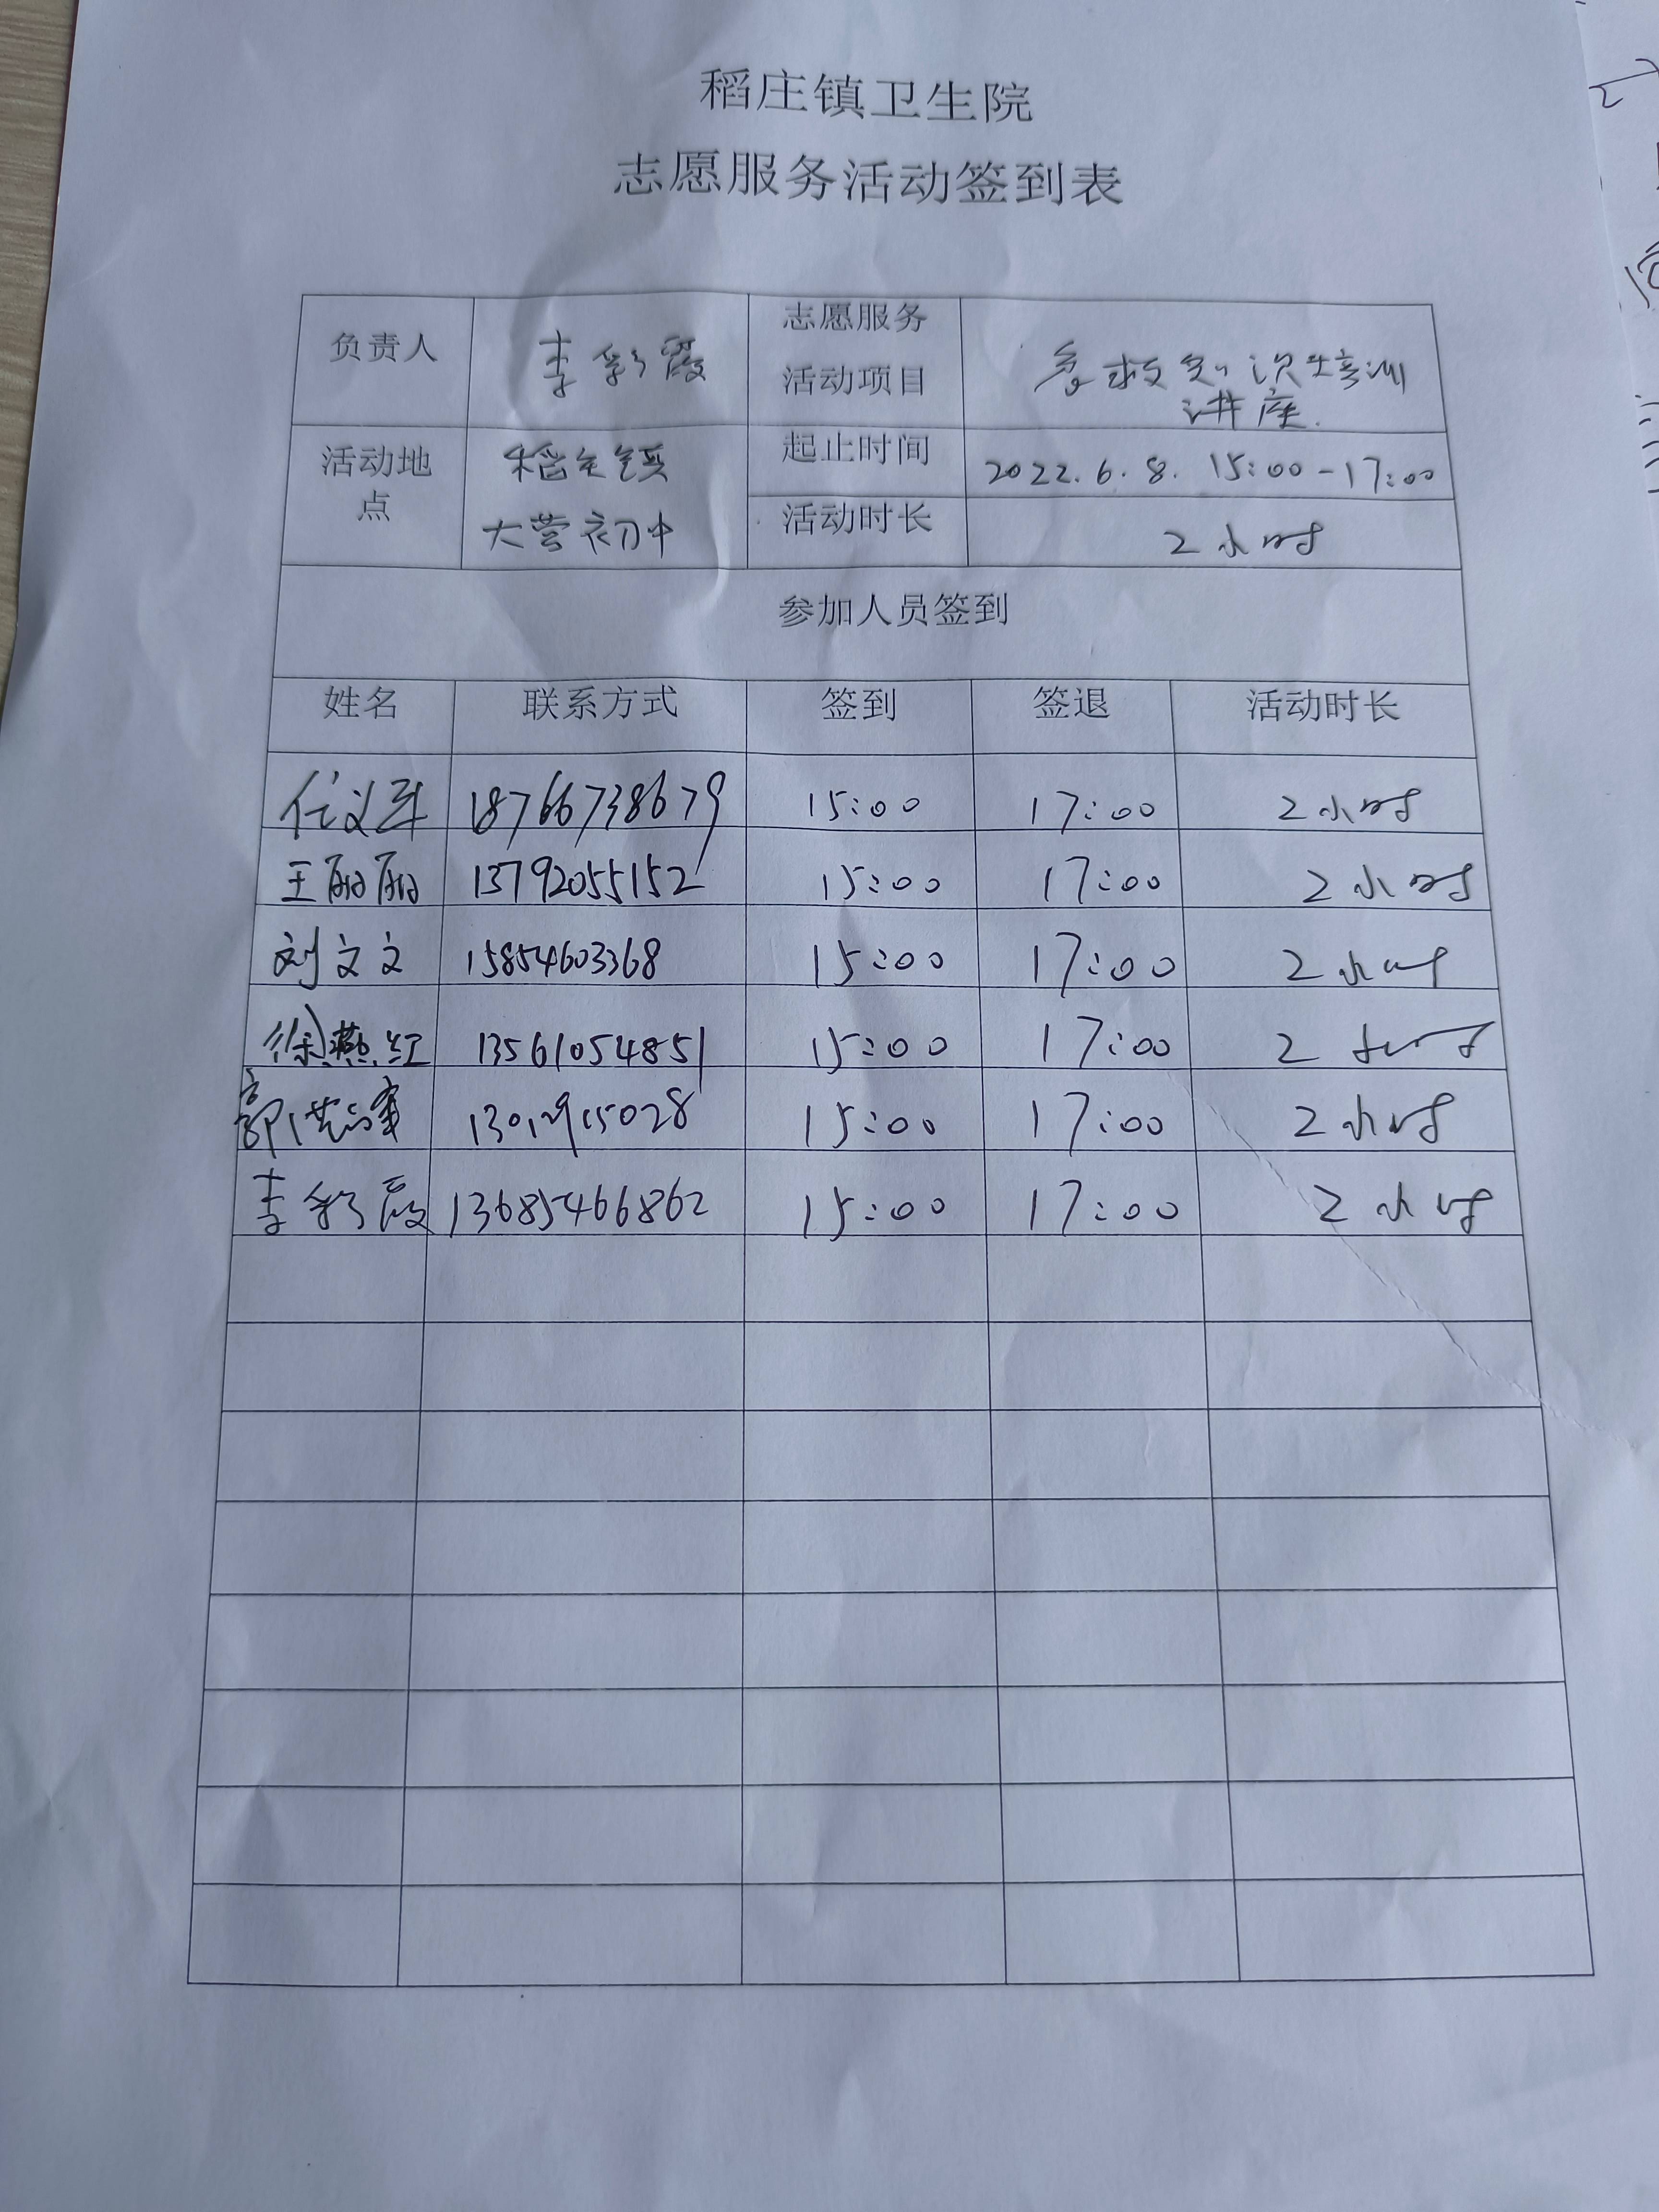 稻庄镇卫生院
志愿服务活动签到表
负责人 李彩霞 志愿服务活动项目 急救知识培训讲座
活动地点 稻庄镇大营初中 起止时间 2022.6.8. 15:00-17:00
活动时长 2小时
参加人员签到
姓名 联系方式 签到 签退 活动时长
18766738679 15:00 17:00 2小时
王丽丽 13792055152 15:00 17:00 2小时
刘文文 15854603368 15:00 17:00 2小时
徐燕红 13561054851 15:00 17:00 2小时
15:00 17:00 2小时
李彩霞 13685466862 15:00 17:00 2小时